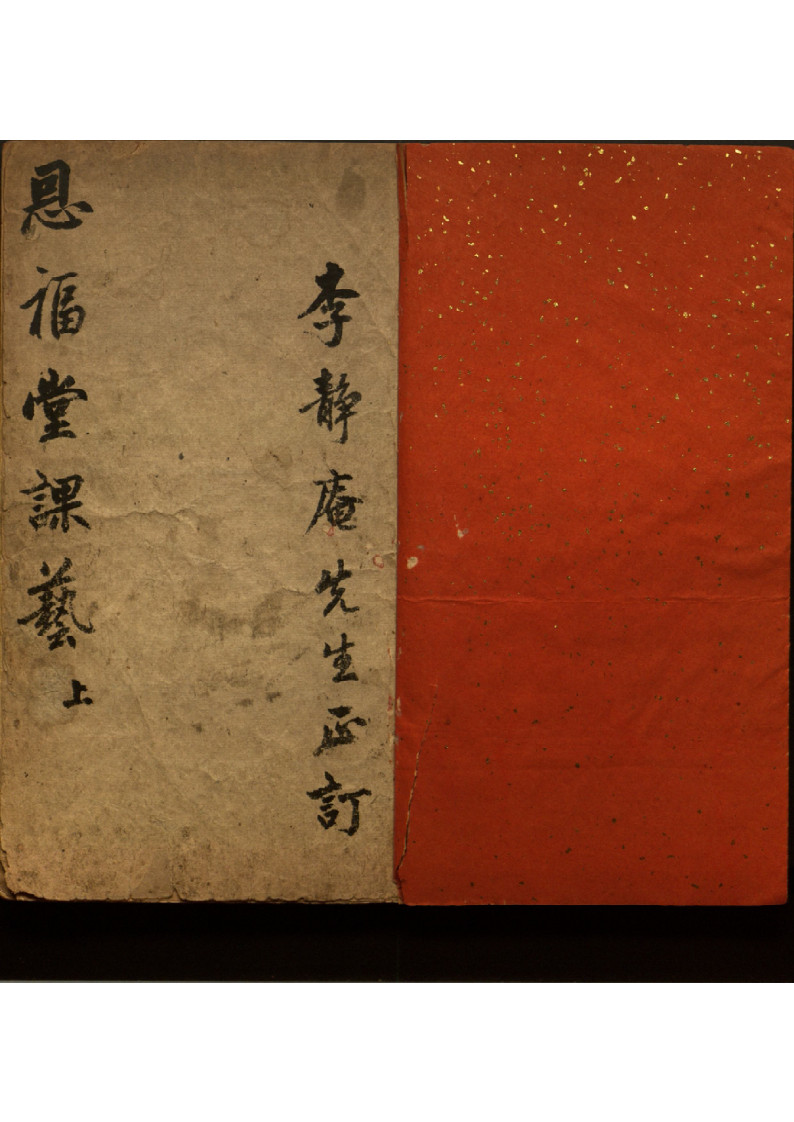 李静庵先生正訂
恩福堂課藝上